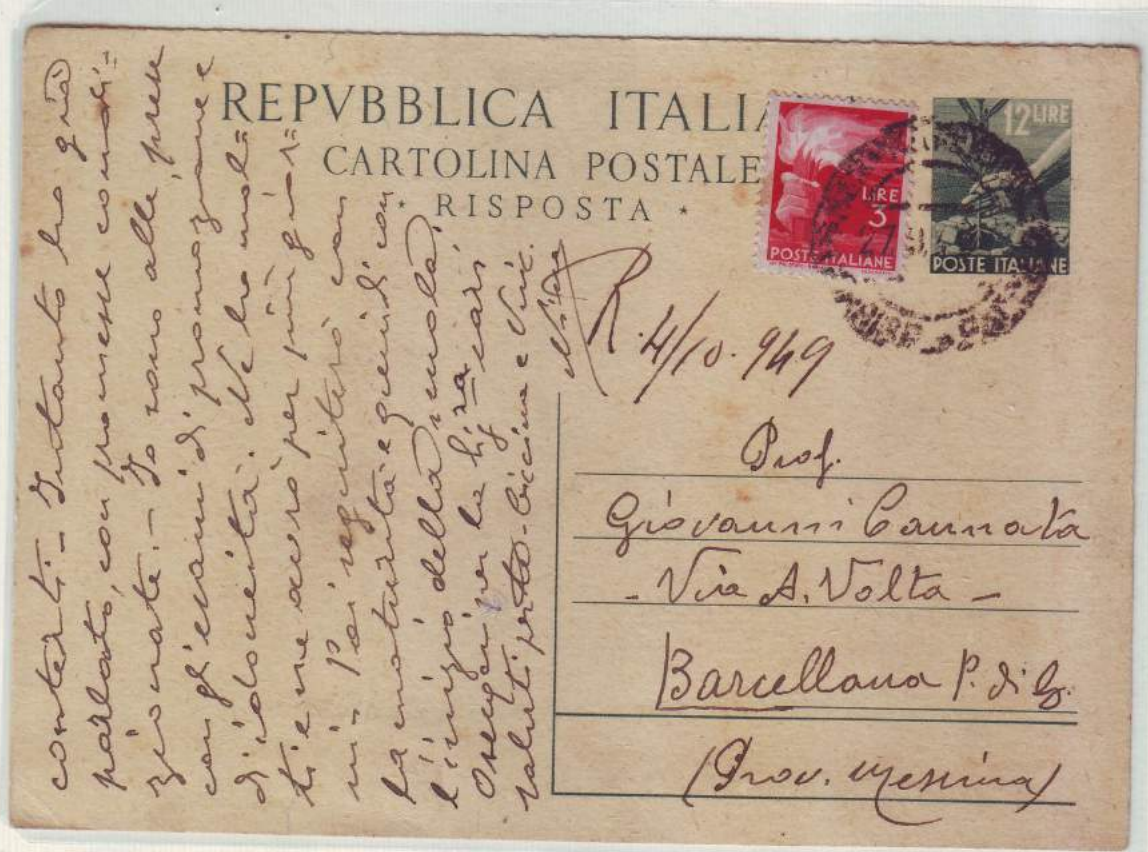 REPVBBLICA ITALIA
CARTOLINA POSTALE
* RISPOSTA *
LIRE
3
POSTE ITALIANE
12 LIRE
POSTE ITALIANE
27
R. 4/10.949
Prof.
Giovanni Cannata
- Via A. Volta -
Barcellona P. di G.
(Prov. Messina)
conterti - Intanto ho già
parlato, con promesse condi=
zionate. - Io sono alle prese
con gl'esami di promozione e
d'idoneità. Ne ho mol=
ti e ne avrò per più gior=
ni - Poi seguiterò con
la maturità e quindi con
l'inizio della scuola.
Ossequi per la Sig.ra cari
saluti per te - Ciccina e Vinc.